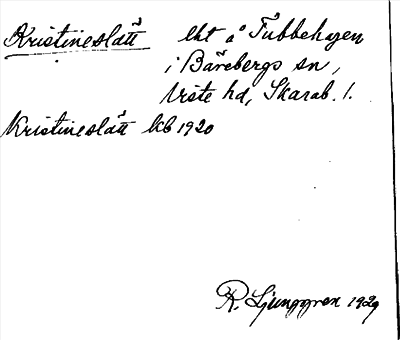 Kristineslätt lht å Tubbehagen
i Bärebergs sn,
Viste hd, Skarab. l.
Kristineslätt kb 1920
R. Ljunggren 1929